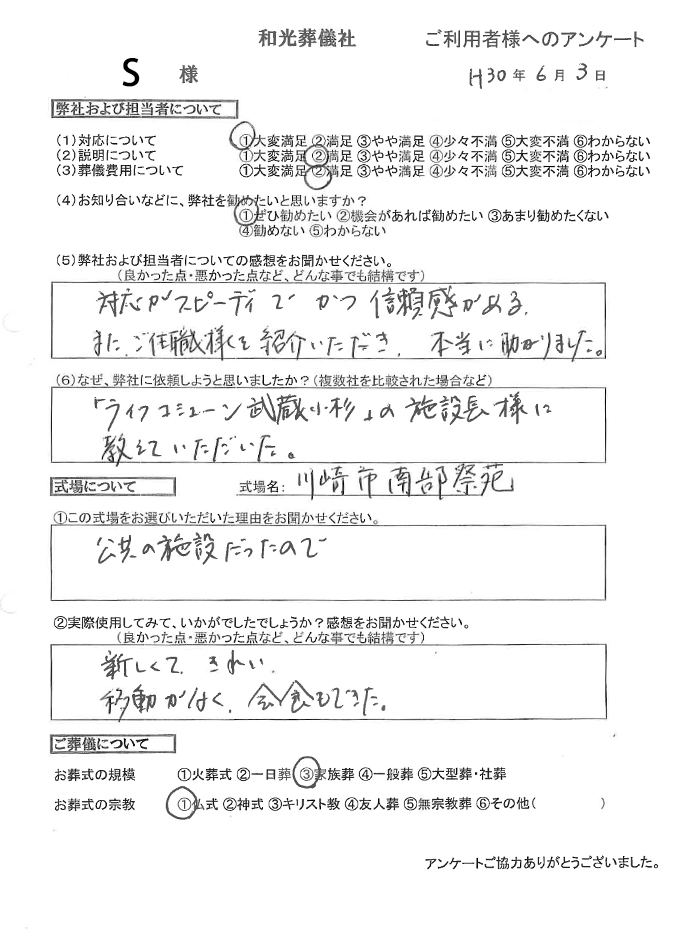 和光葬儀社 ご利用者様へのアンケート
S 様 H30年 6月 3日
弊社および担当者について
(1)対応について ①大変満足 ②満足 ③やや満足 ④少々不満 ⑤大変不満 ⑥わからない
(2)説明について ①大変満足 ②満足 ③やや満足 ④少々不満 ⑤大変不満 ⑥わからない
(3)葬儀費用について ①大変満足 ②満足 ③やや満足 ④少々不満 ⑤大変不満 ⑥わからない
(4)お知り合いなどに、弊社を勧めたいと思いますか?
①ぜひ勧めたい ②機会があれば勧めたい ③あまり勧めたくない
④勧めない ⑤わからない
(5)弊社および担当者についての感想をお聞かせください。
(良かった点・悪かった点など、どんな事でも結構です)
対応がスピーディで かつ 信頼感がある、
また、ご住職様もを紹介いただき、 本当に助かりました。
(6)なぜ、弊社に依頼しようと思いましたか?(複数社を比較された場合など)
「ライフコミューン武蔵小杉」の施設長様に
教えていただいた。
式場について 式場名: 川崎市南部祭苑
①この式場をお選びいただいた理由をお聞かせください。
公共の施設だったので
②実際使用してみて、いかがでしたでしょうか?感想をお聞かせください。
(良かった点・悪かった点など、どんな事でも結構です)
新しくて、きれい、
移動がなく、会食もできた。
ご葬儀について
お葬式の規模 ①火葬式 ②一日葬 ③家族葬 ④一般葬 ⑤大型葬・社葬
お葬式の宗教 ①仏式 ②神式 ③キリスト教 ④友人葬 ⑤無宗教葬 ⑥その他( )
アンケートご協力ありがとうございました。